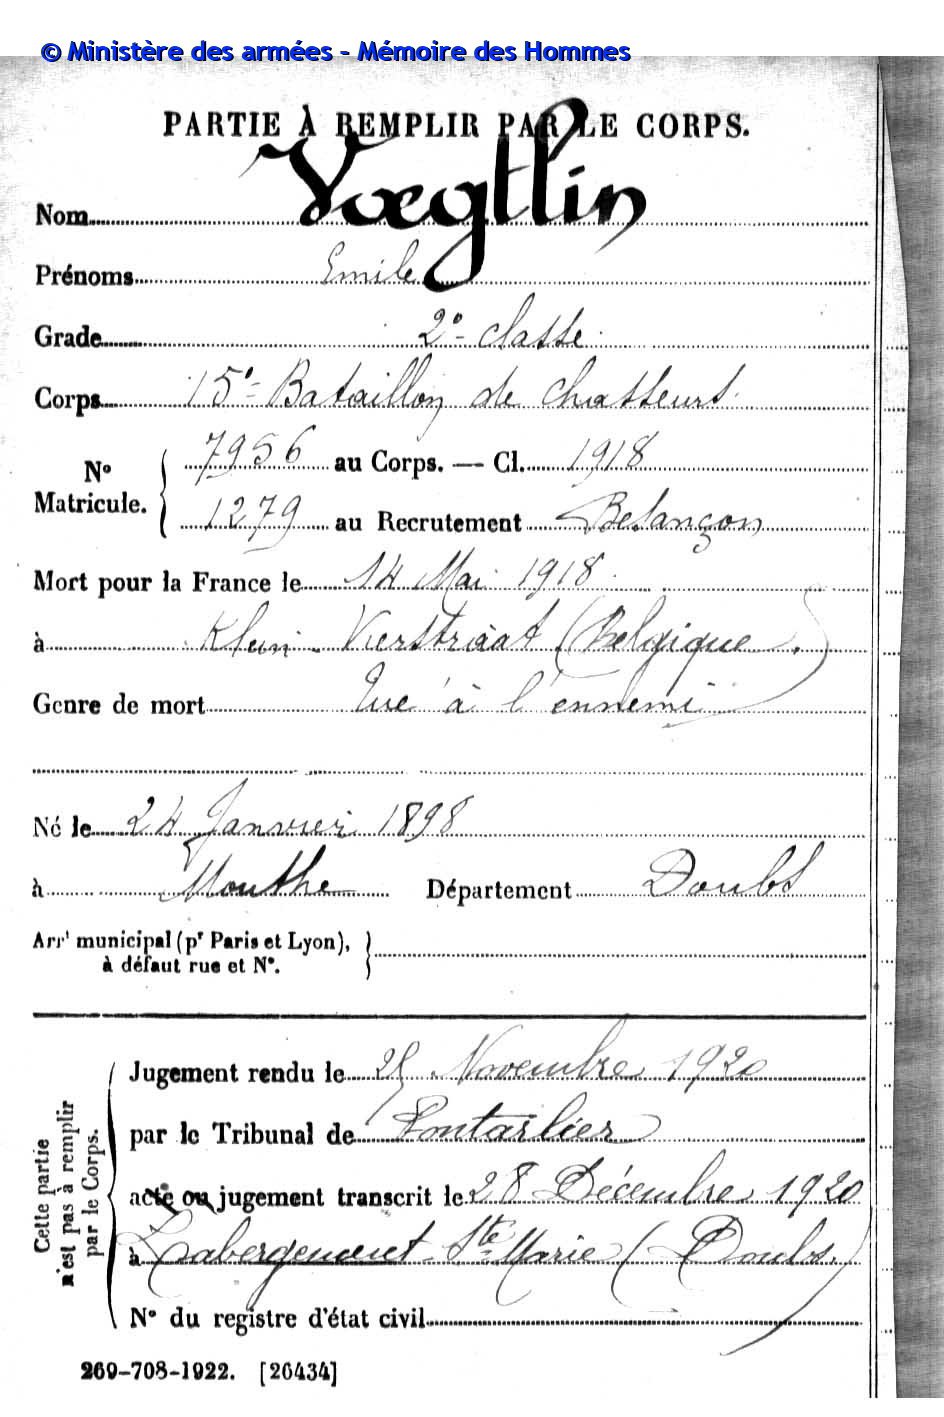 © Ministère des armées - Mémoire des Hommes
PARTIE À REMPLIR PAR LE CORPS.
Nom Vœgtlin
Prénoms Emile
Grade 2e classe
Corps 15e Bataillon de Chasseurs
N° Matricule. { 7956 au Corps. — Cl. 1918
1279 au Recrutement Besançon
Mort pour la France le 14 Mai 1918
à Klein-Vierstraat (Belgique)
Genre de mort Tué à l'ennemi
Né le 24 Janvier 1898
à Mouthe Département Doubs
Arrt municipal (pr Paris et Lyon), }
à défaut rue et N°.
Cette partie n'est pas à remplir par le Corps.
Jugement rendu le 25 Novembre 1920
par le Tribunal de Pontarlier
acte ou jugement transcrit le 28 Décembre 1920
à Labergement Ste Marie (Doubs.)
N° du registre d'état civil
269-708-1922. [26434]